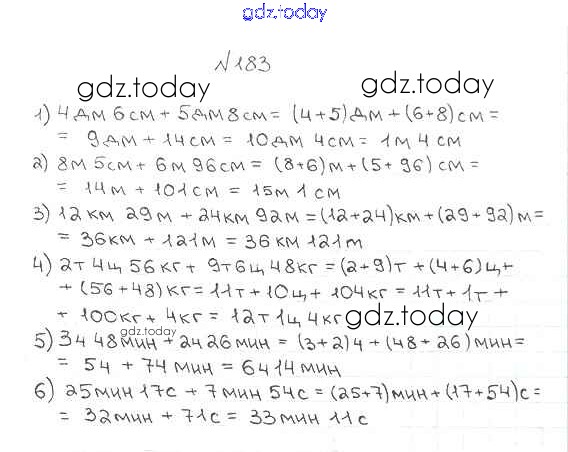 gdz.today
№183
gdz.today gdz.today
1) 4дм 6см + 5дм 8см = (4+5)дм + (6+8)см =
= 9дм + 14см = 10дм 4см = 1м 4см
2) 8м 5см + 6м 96см = (8+6)м + (5+96)см =
= 14м + 101см = 15м 1см
3) 12км 29м + 24км 92м = (12+24)км + (29+92)м =
= 36км + 121м = 36км 121м
4) 2т 4ц 56кг + 9т 6ц 48кг = (2+9)т + (4+6)ц +
+ (56+48)кг = 11т + 10ц + 104кг = 11т + 1т +
+ 100кг + 4кг = 12т 1ц 4кг
gdz.today
gdz.today
5) 3ч 48мин + 2ч 26мин = (3+2)ч + (48+26)мин =
= 5ч + 74мин = 6ч 14мин
6) 25мин 17с + 7мин 54с = (25+7)мин + (17+54)с =
= 32мин + 71с = 33мин 11с